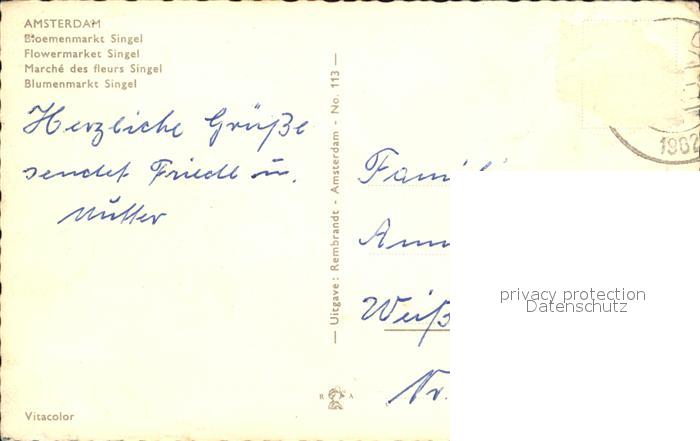 AMSTERDAM
Bloemenmarkt Singel
Flowermarket Singel
Marché des fleurs Singel
Blumenmarkt Singel
Herzliche Grüße
sendet Friedl u.
Mutter
— Uitgave: Rembrandt - Amsterdam - No. 113 —
1962
Famili
Ann
Weiß
Nr.
privacy protection
Datenschutz
R A
Vitacolor